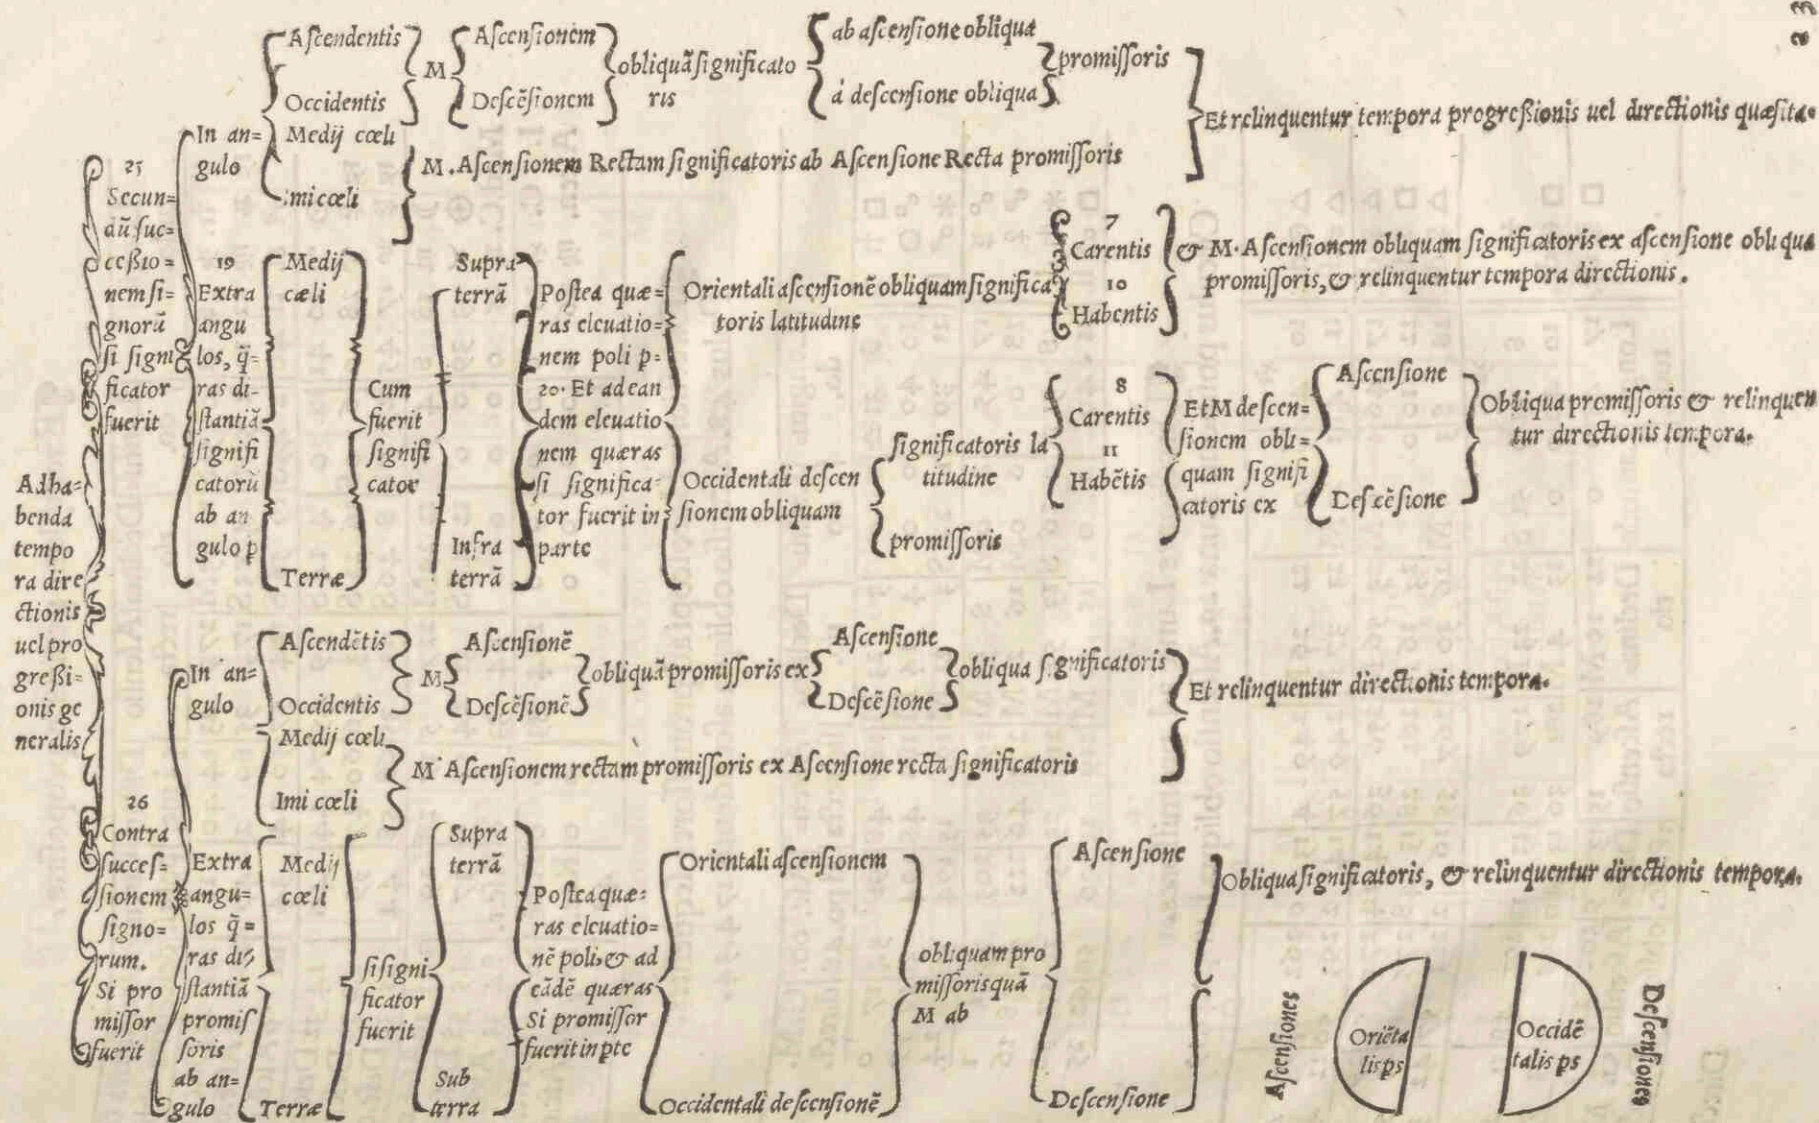 a 3
Ad ha=
benda
tempo
ra dire
ctionis
uel pro
greßi=
onis ge
neralis
25
Secun=
dũ suc=
ceßio=
nem si=
gnorũ
si signi
ficator
fuerit
In an=
gulo
Ascendentis
Occidentis
Medij cœli
Imi cœli
M
Ascensionem
Descẽsionem
obliquã significato
ris
ab ascensione obliqua
á descensione obliqua
promissoris
M. Ascensionem Rectam significatoris ab Ascensione Recta promissoris
Et relinquentur tempora progreßionis uel directionis quæsita.
19
Extra
angu
los, q̃=
ras di=
stantiã
signifi
catorũ
ab an
gulo p
Medij
cæli
Terræ
Cum
fuerit
signifi
cator
Supra
terrã
Infra
terrã
Postea quæ=
ras eleuatio=
nem poli p=
20. Et ad ean
dem eleuatio
nem quæras
si significa=
tor fuerit in
parte
Orientali ascensionẽ obliquam significa
toris latitudine
7
Carentis
10
Habentis
& M. Ascensionem obliquam significatoris ex ascensione obliqua
promissoris, & relinquentur tempora directionis.
Occidentali descen
sionem obliquam
significatoris la
titudine
promissoris
8
Carentis
11
Habẽtis
Et M descen=
sionem obli=
quam signifi
catoris ex
Ascensione
Descẽsione
Obliqua promissoris & relinquen
tur directionis tempora.
26
Contra
succes=
sionem
signo=
rum.
Si pro
missor
fuerit
In an=
gulo
Ascendẽtis
Occidentis
Medij cœli
Imi cœli
M
Ascensionẽ
Descẽsionẽ
obliquã promissoris ex
Ascensione
Descẽsione
obliqua significatoris
M Ascensionem rectam promissoris ex Ascensione recta significatoris
Et relinquentur directionis tempora.
Extra
angu=
los q̃=
ras di=
stantiã
promis
soris
ab an=
gulo
Medij
cœli
Terræ
si signi
ficator
fuerit
Supra
terrã
Sub
terra
Postea quæ=
ras eleuatio=
nẽ poli, & ad
eãdẽ quæras
Si promissor
fuerit in pte
Orientali ascensionem
Occidentali descensionẽ
obliquam pro
missoris quã
M ab
Ascensione
Descensione
Obliqua significatoris, & relinquentur directionis tempora.
Ascensiones
Oriẽta
lis ps
Occidẽ
talis ps
Descensiones